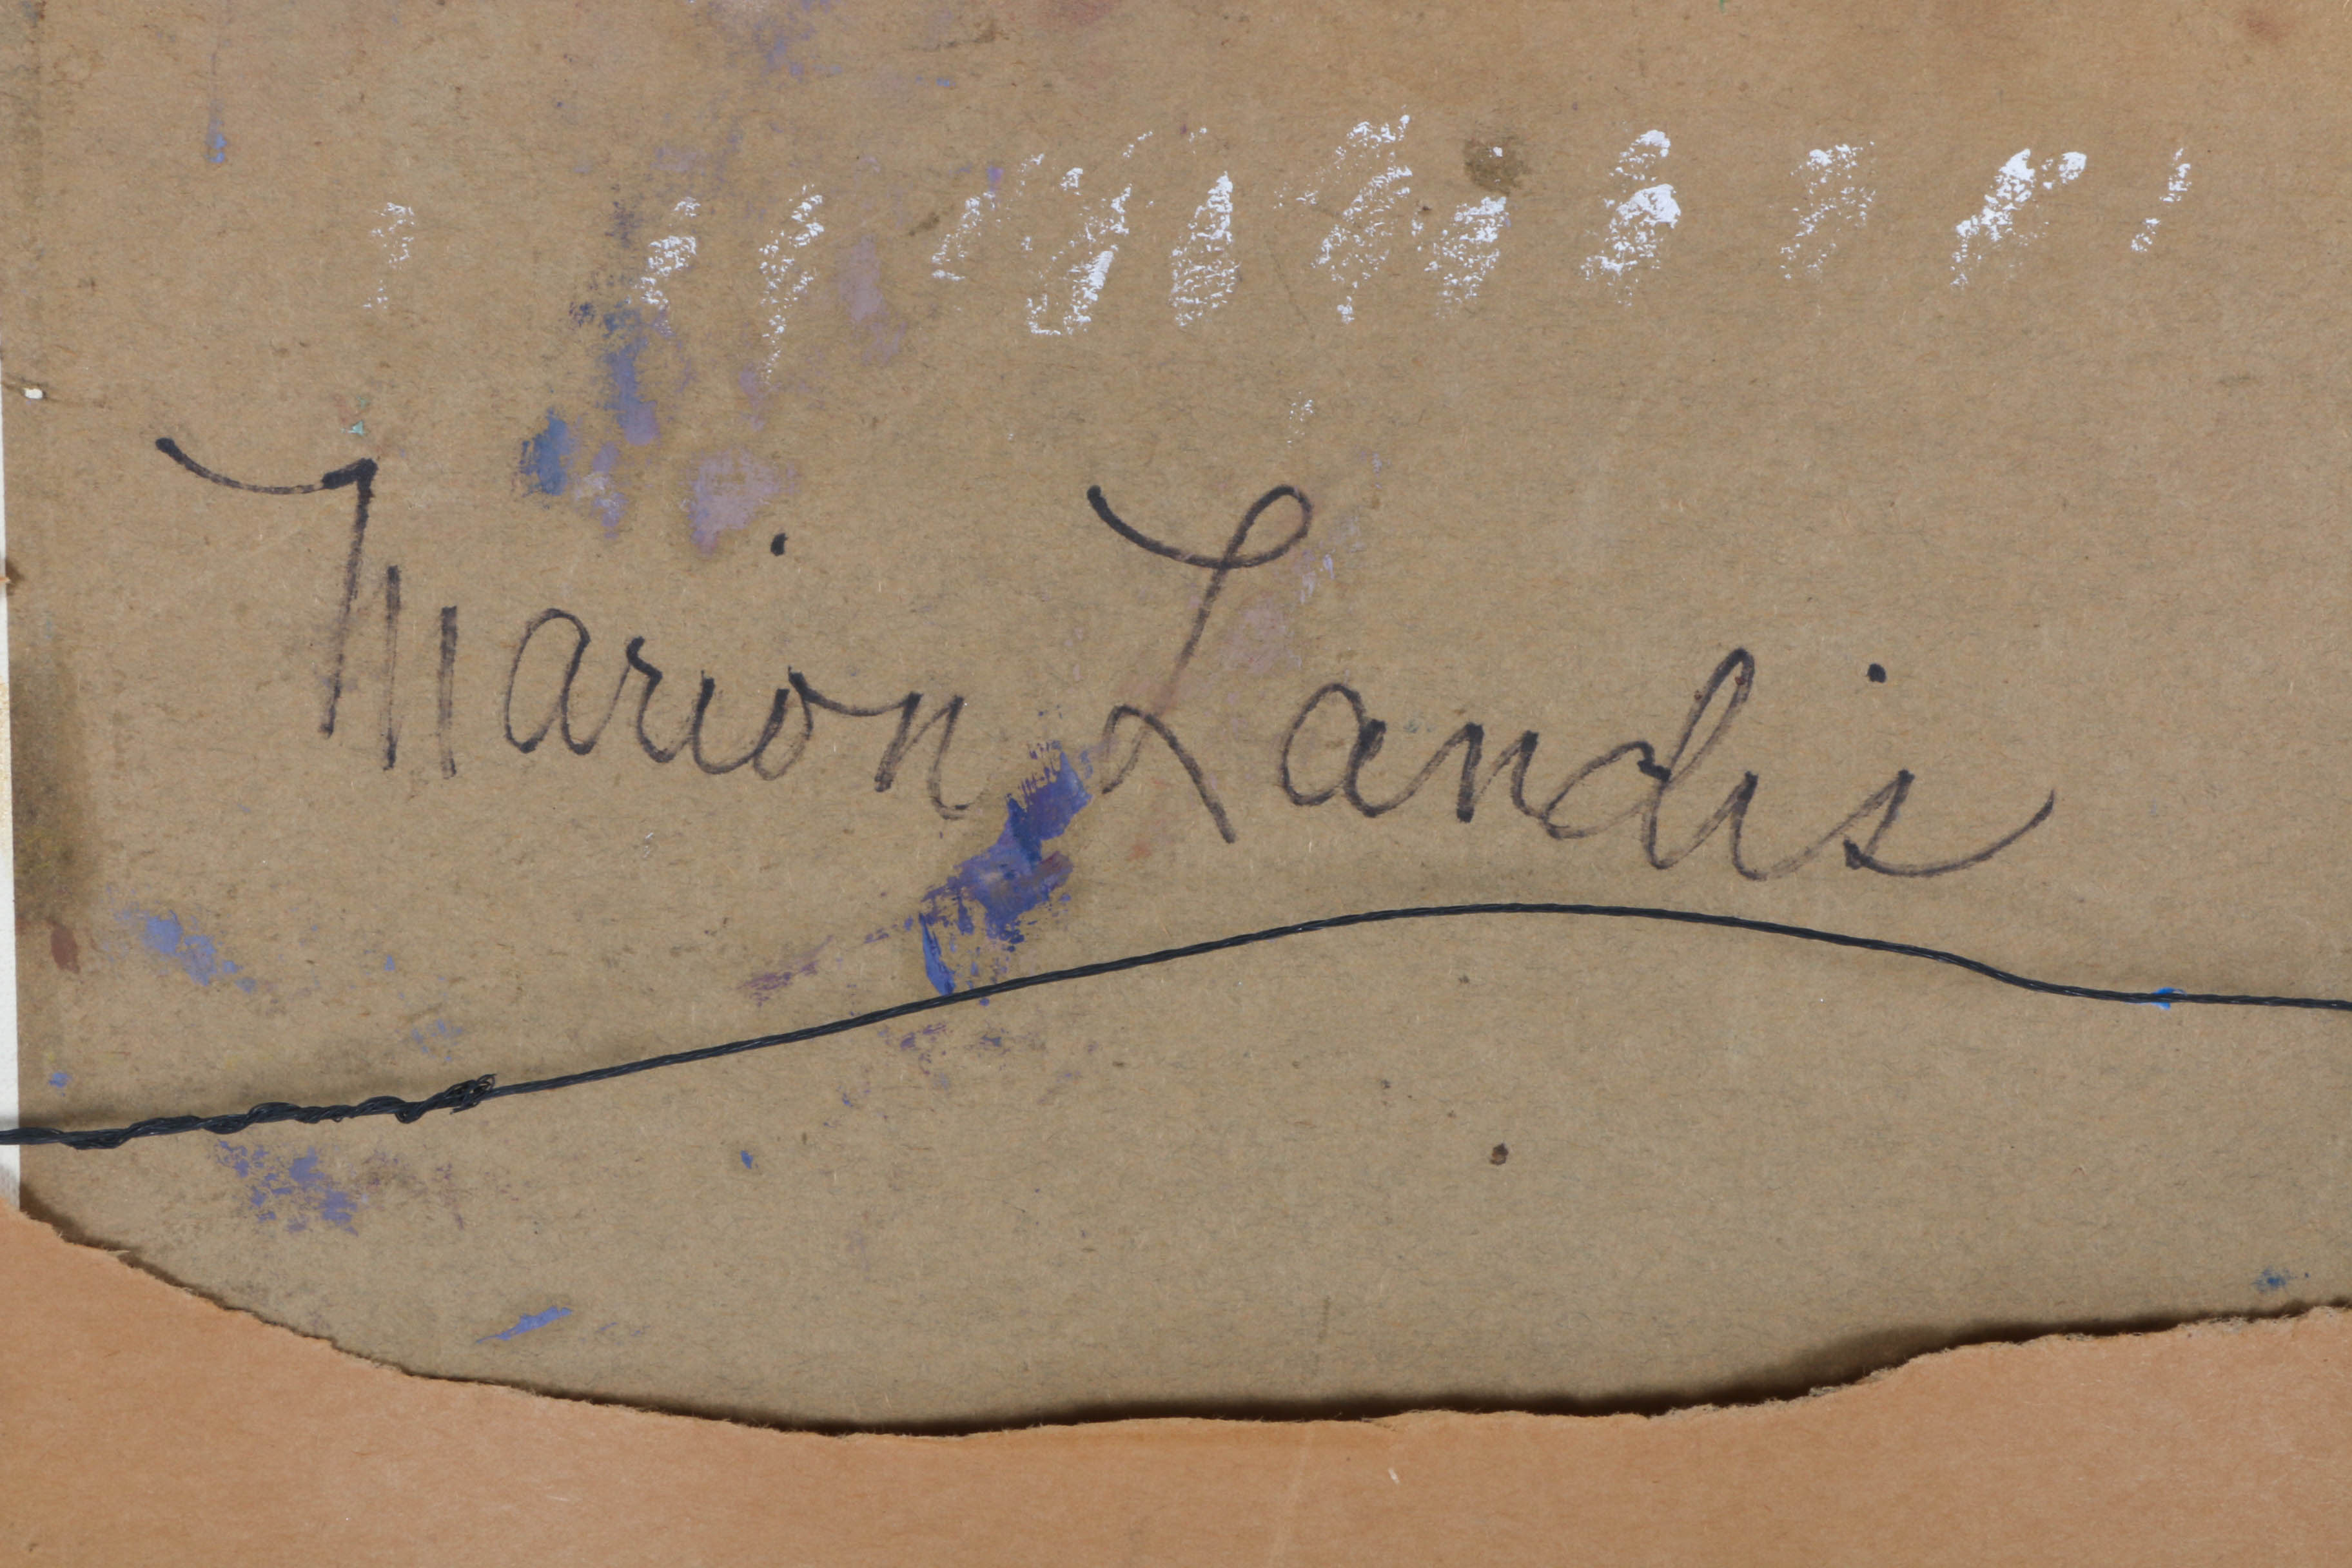 Marion Landis